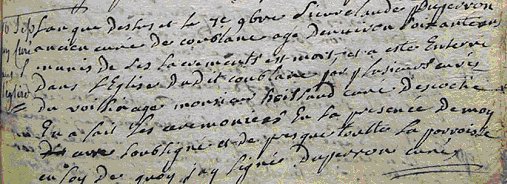 Lan que dessus et le 7e 9bre Sieur claude duperron
ancien curé de coublanc agé denviron soixante ans
munis de ses sacrements est mort, et a esté Enterré
dans L'Eglise dudit coublanc par plusieurs curés
du voisinage monsieur curé
En a fait les ceremonies En la presence de moy
soubsigné et de presque toutte la parroisse
en foy de quoy jay signé Duperron curé